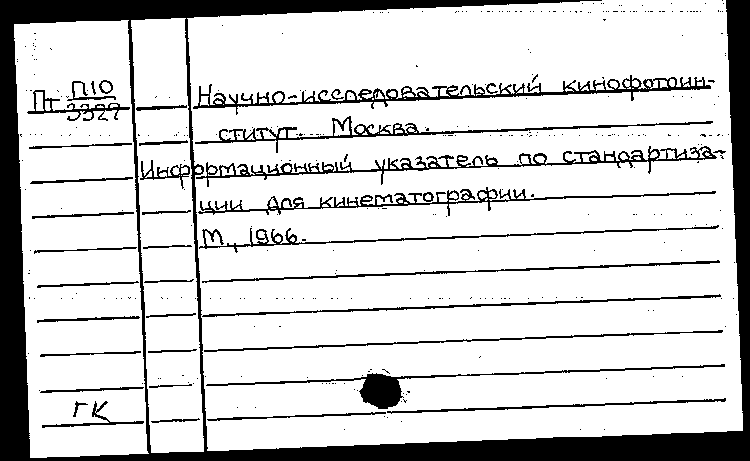 Пт П10
3329
Научно-исследовательский кинофотоин-
ститут. Москва.
Информационный указатель по стандартиза-
ции для кинематографии.
М., 1966.
ГК